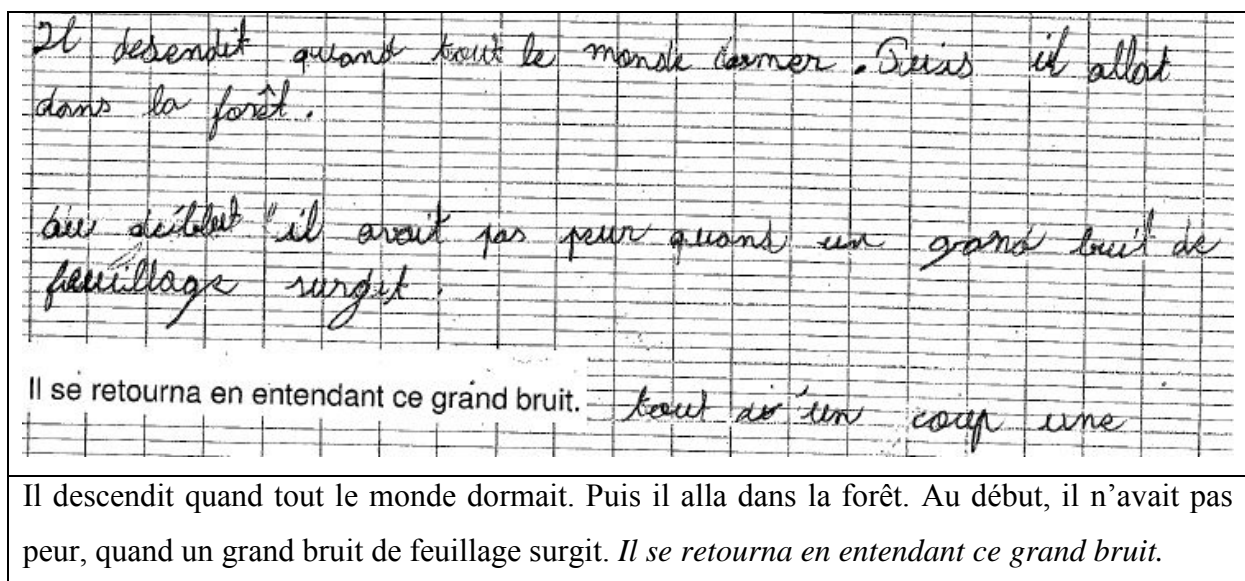 Il desendit quand tout le monde dormer. Puis il allat
dans la forêt.
au déibbut il avait pas peur quand un grand bruit de
feuillage surgit.
Il se retourna en entendant ce grand bruit. tout d'un coup une
Il descendit quand tout le monde dormait. Puis il alla dans la forêt. Au début, il n’avait pas
peur, quand un grand bruit de feuillage surgit. Il se retourna en entendant ce grand bruit.